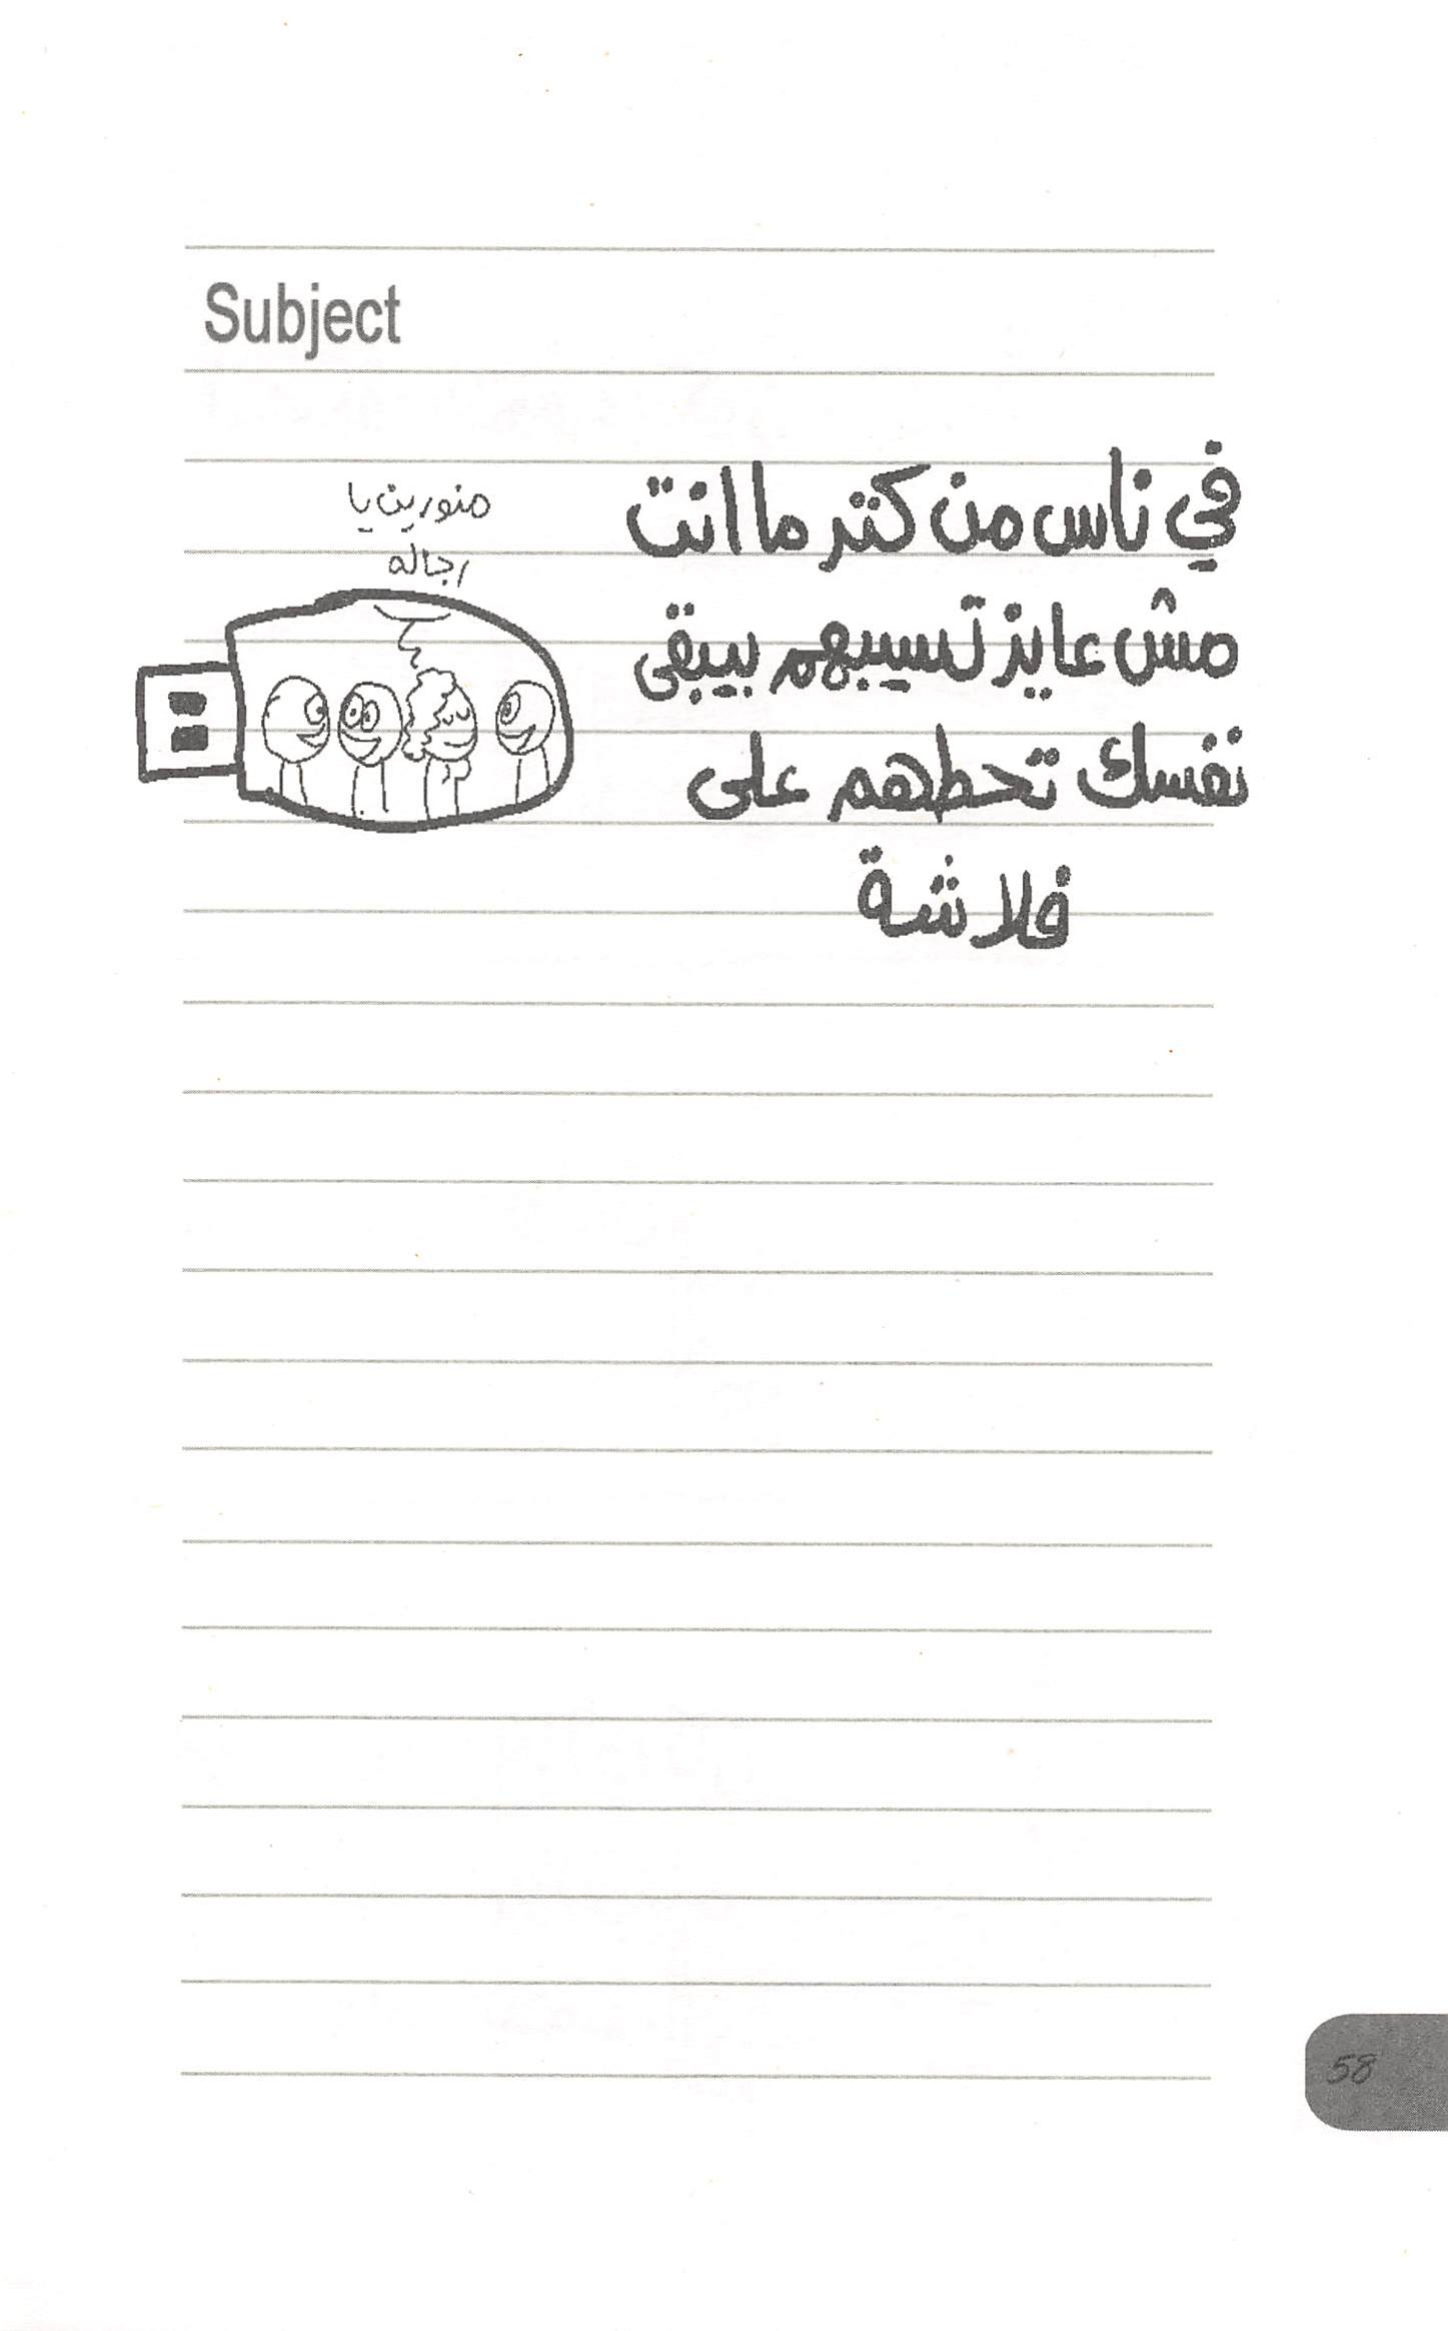 Subject
في ناس من كتر ما انت
مش عايز تسيبهم بيبقى
نفسك تحطهم على
فلاشة
منورين يا
رجاله
58